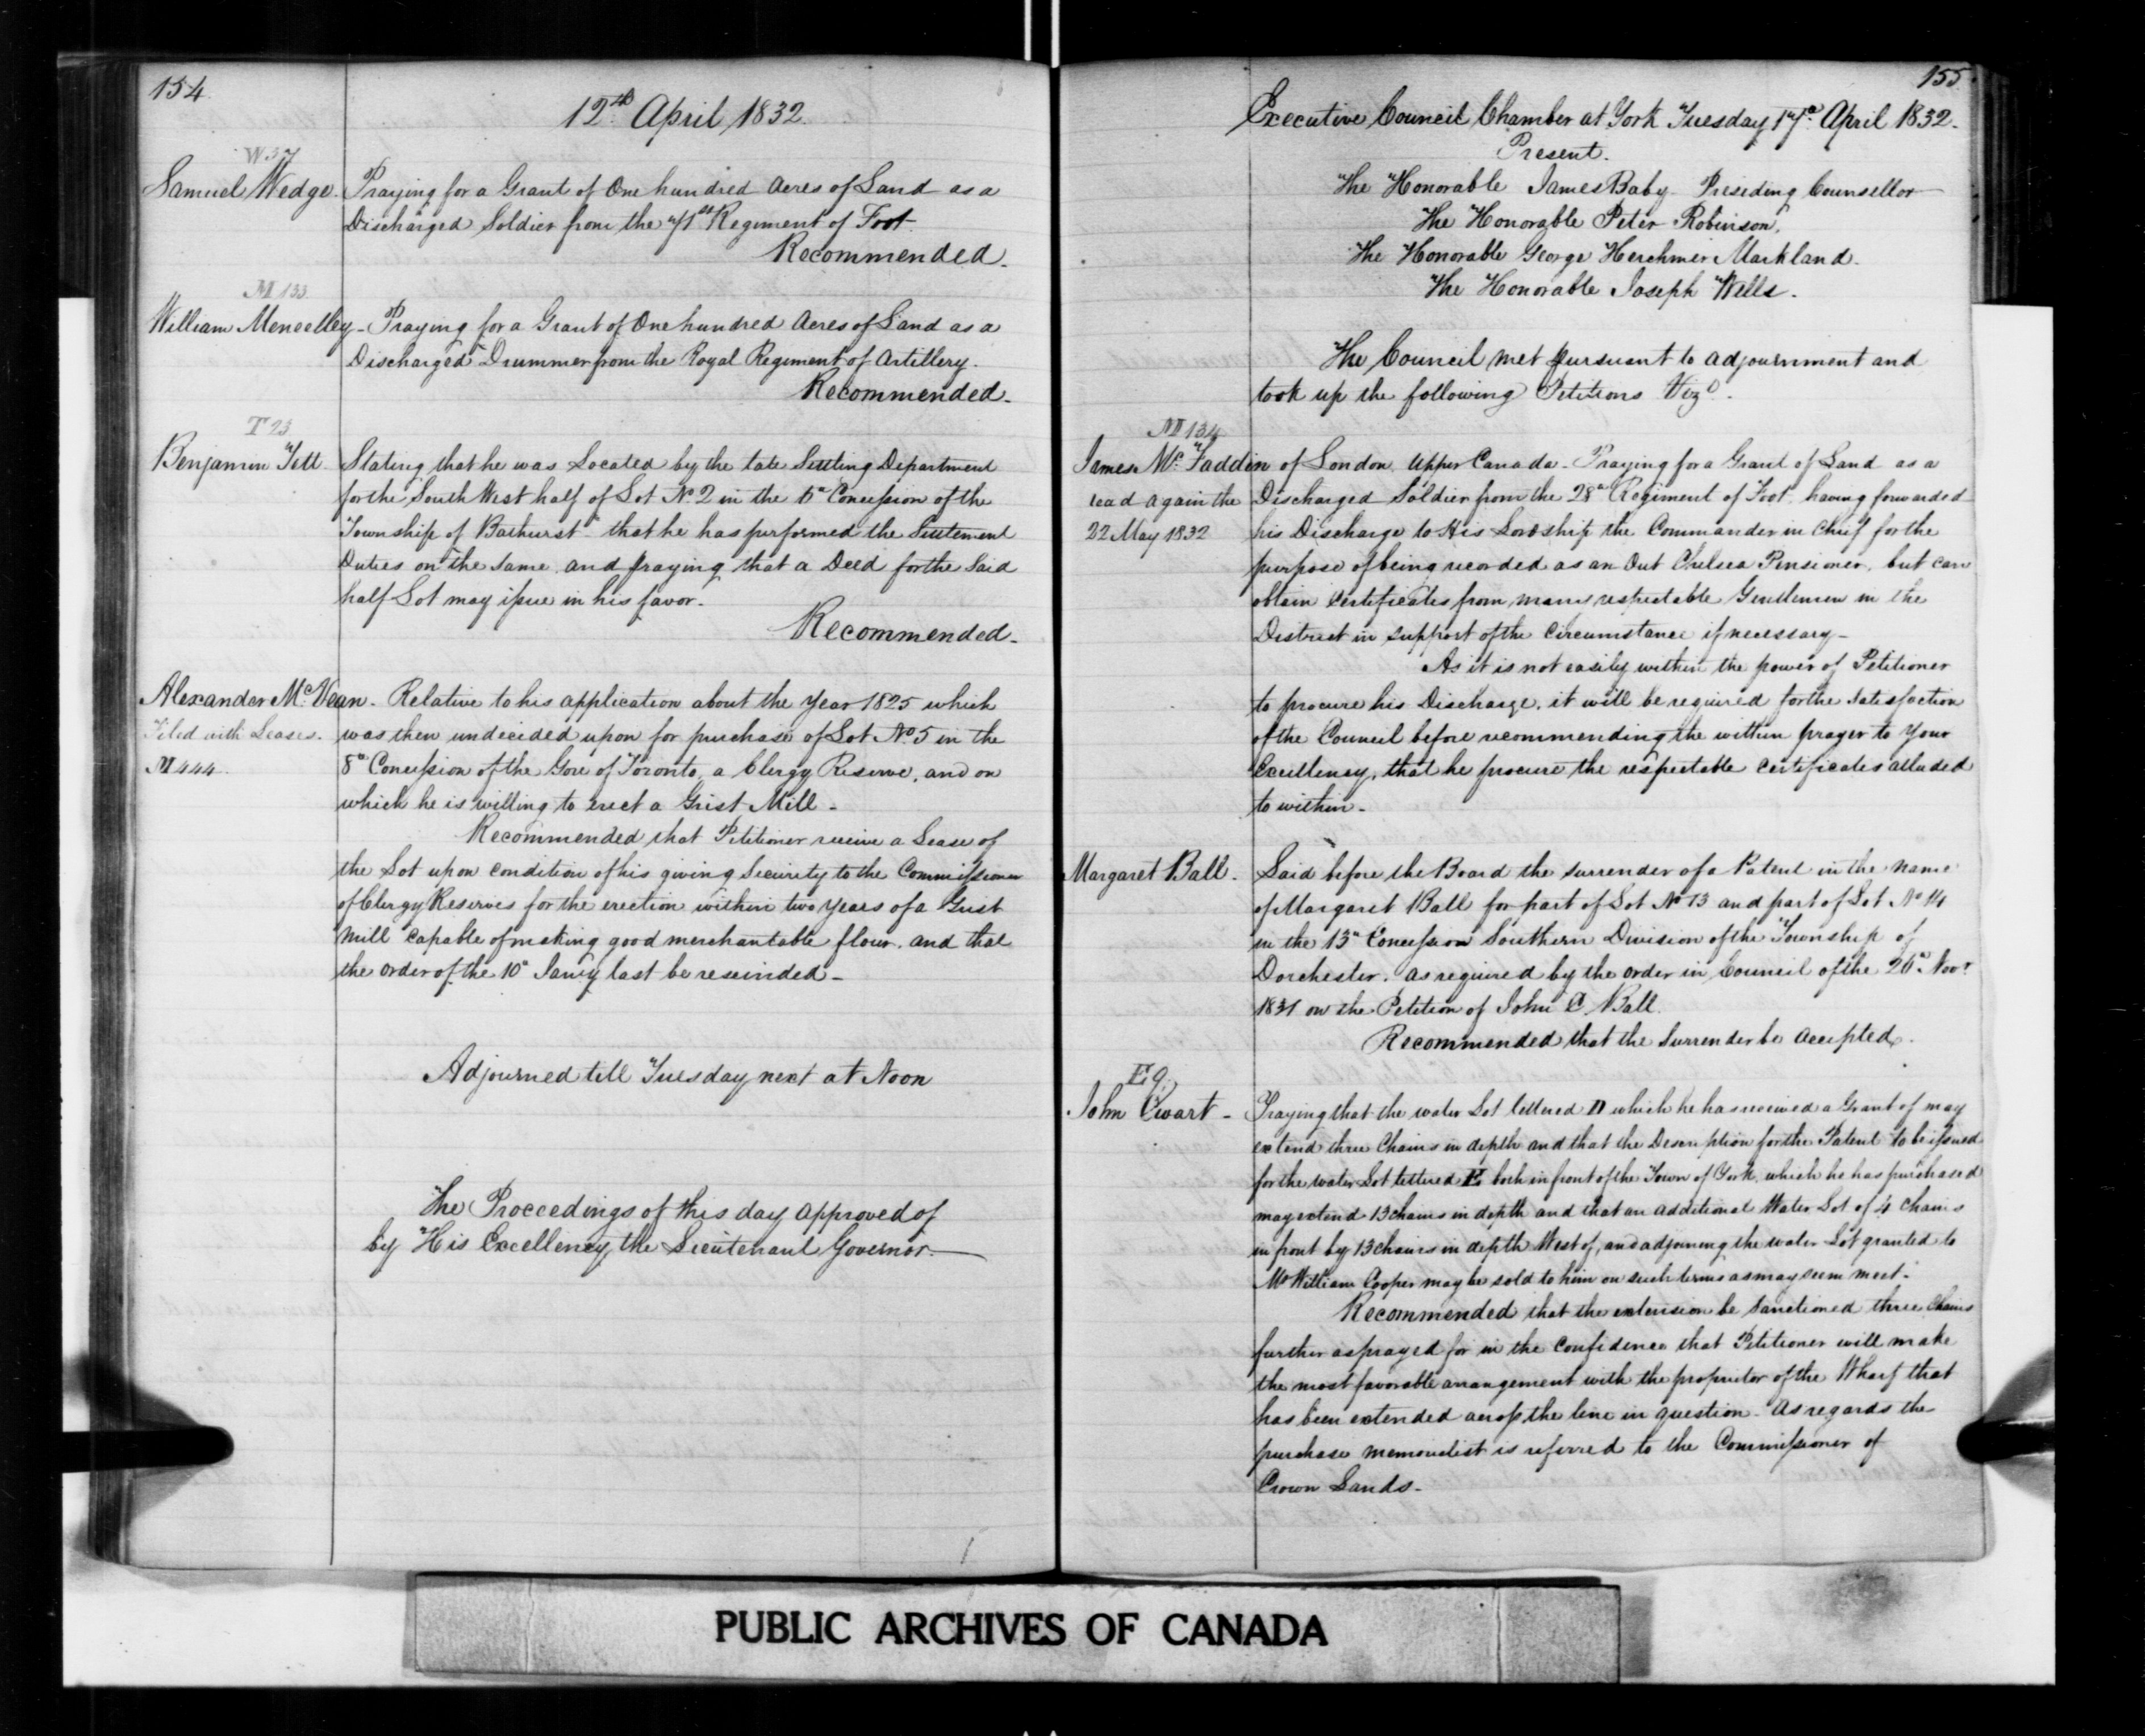 154
12th April 1832
W 37
Samuel Wedge. Praying for a Grant of One hundred Acres of Land as a
Discharged Soldier from the 71st Regiment of Foot.
Recommended.
M 133
William Mencelley - Praying for a Grant of One hundred Acres of Land as a
Discharged Drummer from the Royal Regiment of Artillery.
Recommended.
T 23
Benjamin Tett. Stating that he was Located by the late Settling Department
for the South West half of Lot No. 2 in the Concession of the
Township of Bathurst - that he has performed the Settlement
Duties on the Same and praying that a Deed for the Said
half Lot may issue in his favor.
Recommended.
Alexander McVean. Relative to his application about the Year 1825 which
Filed with Leases. was then undecided upon for purchase of Lot No. 5 in the
M 444. 8th Concession of the Gore of Toronto, a Clergy Reserve, and on
which he is willing to erect a Grist Mill -
Recommended that Petitioner receive a Lease of
the Lot upon condition of his giving Security to the Commissioner
of Clergy Reserves for the erection within two years of a Grist
Mill capable of making good merchantable flour. and that
the order of the 10th Jany last be rescinded -
Adjourned till Tuesday next at Noon
The Proceedings of this day approved of
by His Excellency the Lieutenant Governor.
155.
Executive Council Chamber at York Tuesday 17th April 1832.
Present.
The Honorable James Baby Presiding Counsellor
The Honorable Peter Robinson,
The Honorable George Herchmer Markland.
The Honorable Joseph Wells.
The Council met pursuant to adjournment and
took up the following Petitions Vizt.
M 134
James McFaddin of London, Upper Canada - Praying for a Grant of Land as a
read again the Discharged Soldier from the 28th Regiment of Foot, having forwarded
22 May 1832 his Discharge to His Lordship the Commander in Chief for the
purpose of being recorded as an Out Chelsea Pensioner, but can
obtain certificates from many respectable Gentlemen in the
District in support of the circumstance if necessary -
As it is not easily within the power of Petitioner
to procure his Discharge, it will be required for the Satisfaction
of the Council before recommending the within prayer to Your
Excellency, that he procure the respectable certificates alluded
to within -
Margaret Ball. Laid before the Board the surrender of a Patent in the name
of Margaret Ball for part of Lot No 13 and part of Lot No 14
in the 13th Concession Southern Division of the Township of
Dorchester, as required by the order in Council of the 26th Novr
1831 on the Petition of John C. Ball.
Recommended that the Surrender be accepted.
E 9.
John Ewart - Praying that the water Lot lettered D which he has received a Grant of may
extend three Chains in depth and that the Description for the Patent to be issued
for the water Lot lettered E both in front of the Town of York, which he has purchased
may extend 13 chains in depth and that an additional Water Lot of 4 chains
in front by 13 chains in depth West of, and adjoining the water Lot granted to
Mr William Cooper may be sold to him on such terms as may seem meet.
Recommended that the extension be Sanctioned three Chains
further as prayed for in the confidence that Petitioner will make
the most favorable arrangement with the proprietor of the Wharf that
has been extended across the line in question - As regards the
purchase memorialist is referred to the Commissioner of
Crown Lands -
PUBLIC ARCHIVES OF CANADA